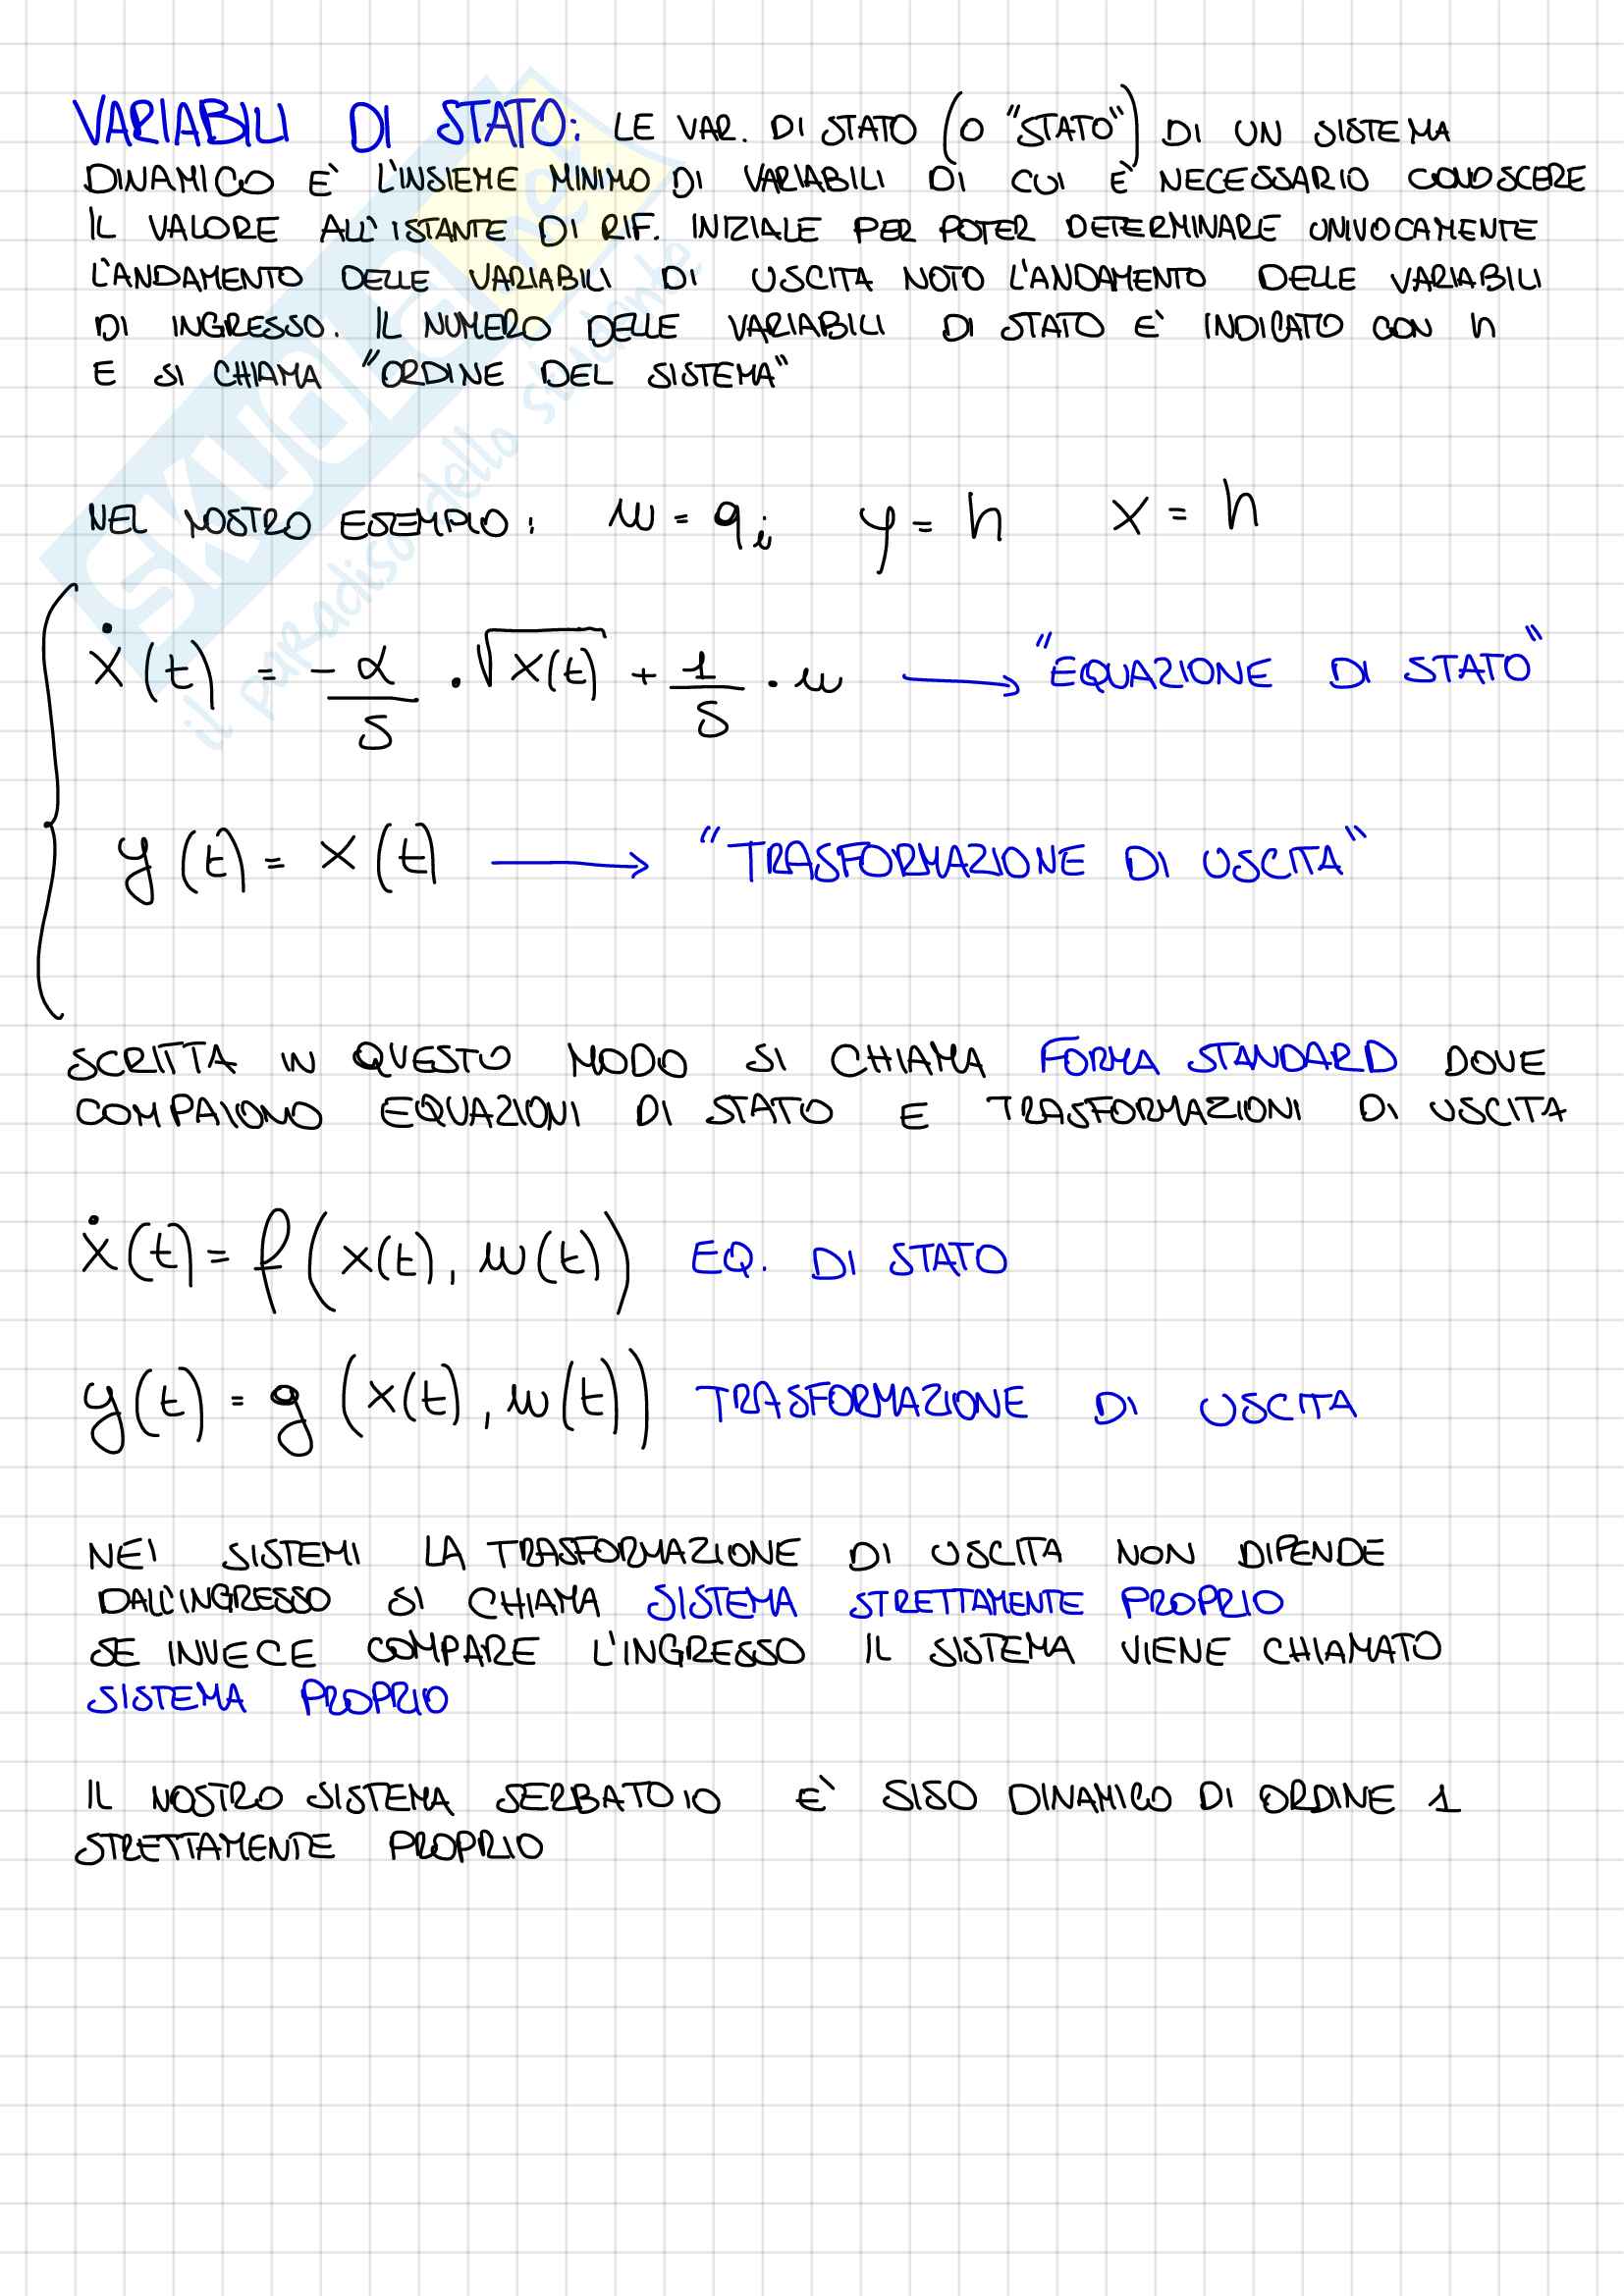 VARIABILI DI STATO: LE VAR. DI STATO (O "STATO") DI UN SISTEMA
DINAMICO E' L'INSIEME MINIMO DI VARIABILI DI CUI E' NECESSARIO CONOSCERE
IL VALORE ALL'ISTANTE DI RIF. INIZIALE PER POTER DETERMINARE UNIVOCAMENTE
L'ANDAMENTO DELLE VARIABILI DI USCITA NOTO L'ANDAMENTO DELLE VARIABILI
DI INGRESSO. IL NUMERO DELLE VARIABILI DI STATO E' INDICATO CON n
E SI CHIAMA "ORDINE DEL SISTEMA"
NEL NOSTRO ESEMPIO: u = qᵢ y = h x = h
ẋ(t) = -α/S · √x(t) + 1/S · u → "EQUAZIONE DI STATO"
y(t) = x(t) → "TRASFORMAZIONE DI USCITA"
SCRITTA IN QUESTO MODO SI CHIAMA FORMA STANDARD DOVE
COMPAIONO EQUAZIONI DI STATO E TRASFORMAZIONI DI USCITA
ẋ(t) = f(x(t), u(t)) EQ. DI STATO
y(t) = g(x(t), u(t)) TRASFORMAZIONE DI USCITA
NEI SISTEMI LA TRASFORMAZIONE DI USCITA NON DIPENDE
DALL'INGRESSO SI CHIAMA SISTEMA STRETTAMENTE PROPRIO
SE INVECE COMPARE L'INGRESSO IL SISTEMA VIENE CHIAMATO
SISTEMA PROPRIO
IL NOSTRO SISTEMA SERBATOIO E' SISO DINAMICO DI ORDINE 1
STRETTAMENTE PROPRIO
SKUOLA.net
il paradiso dello studente